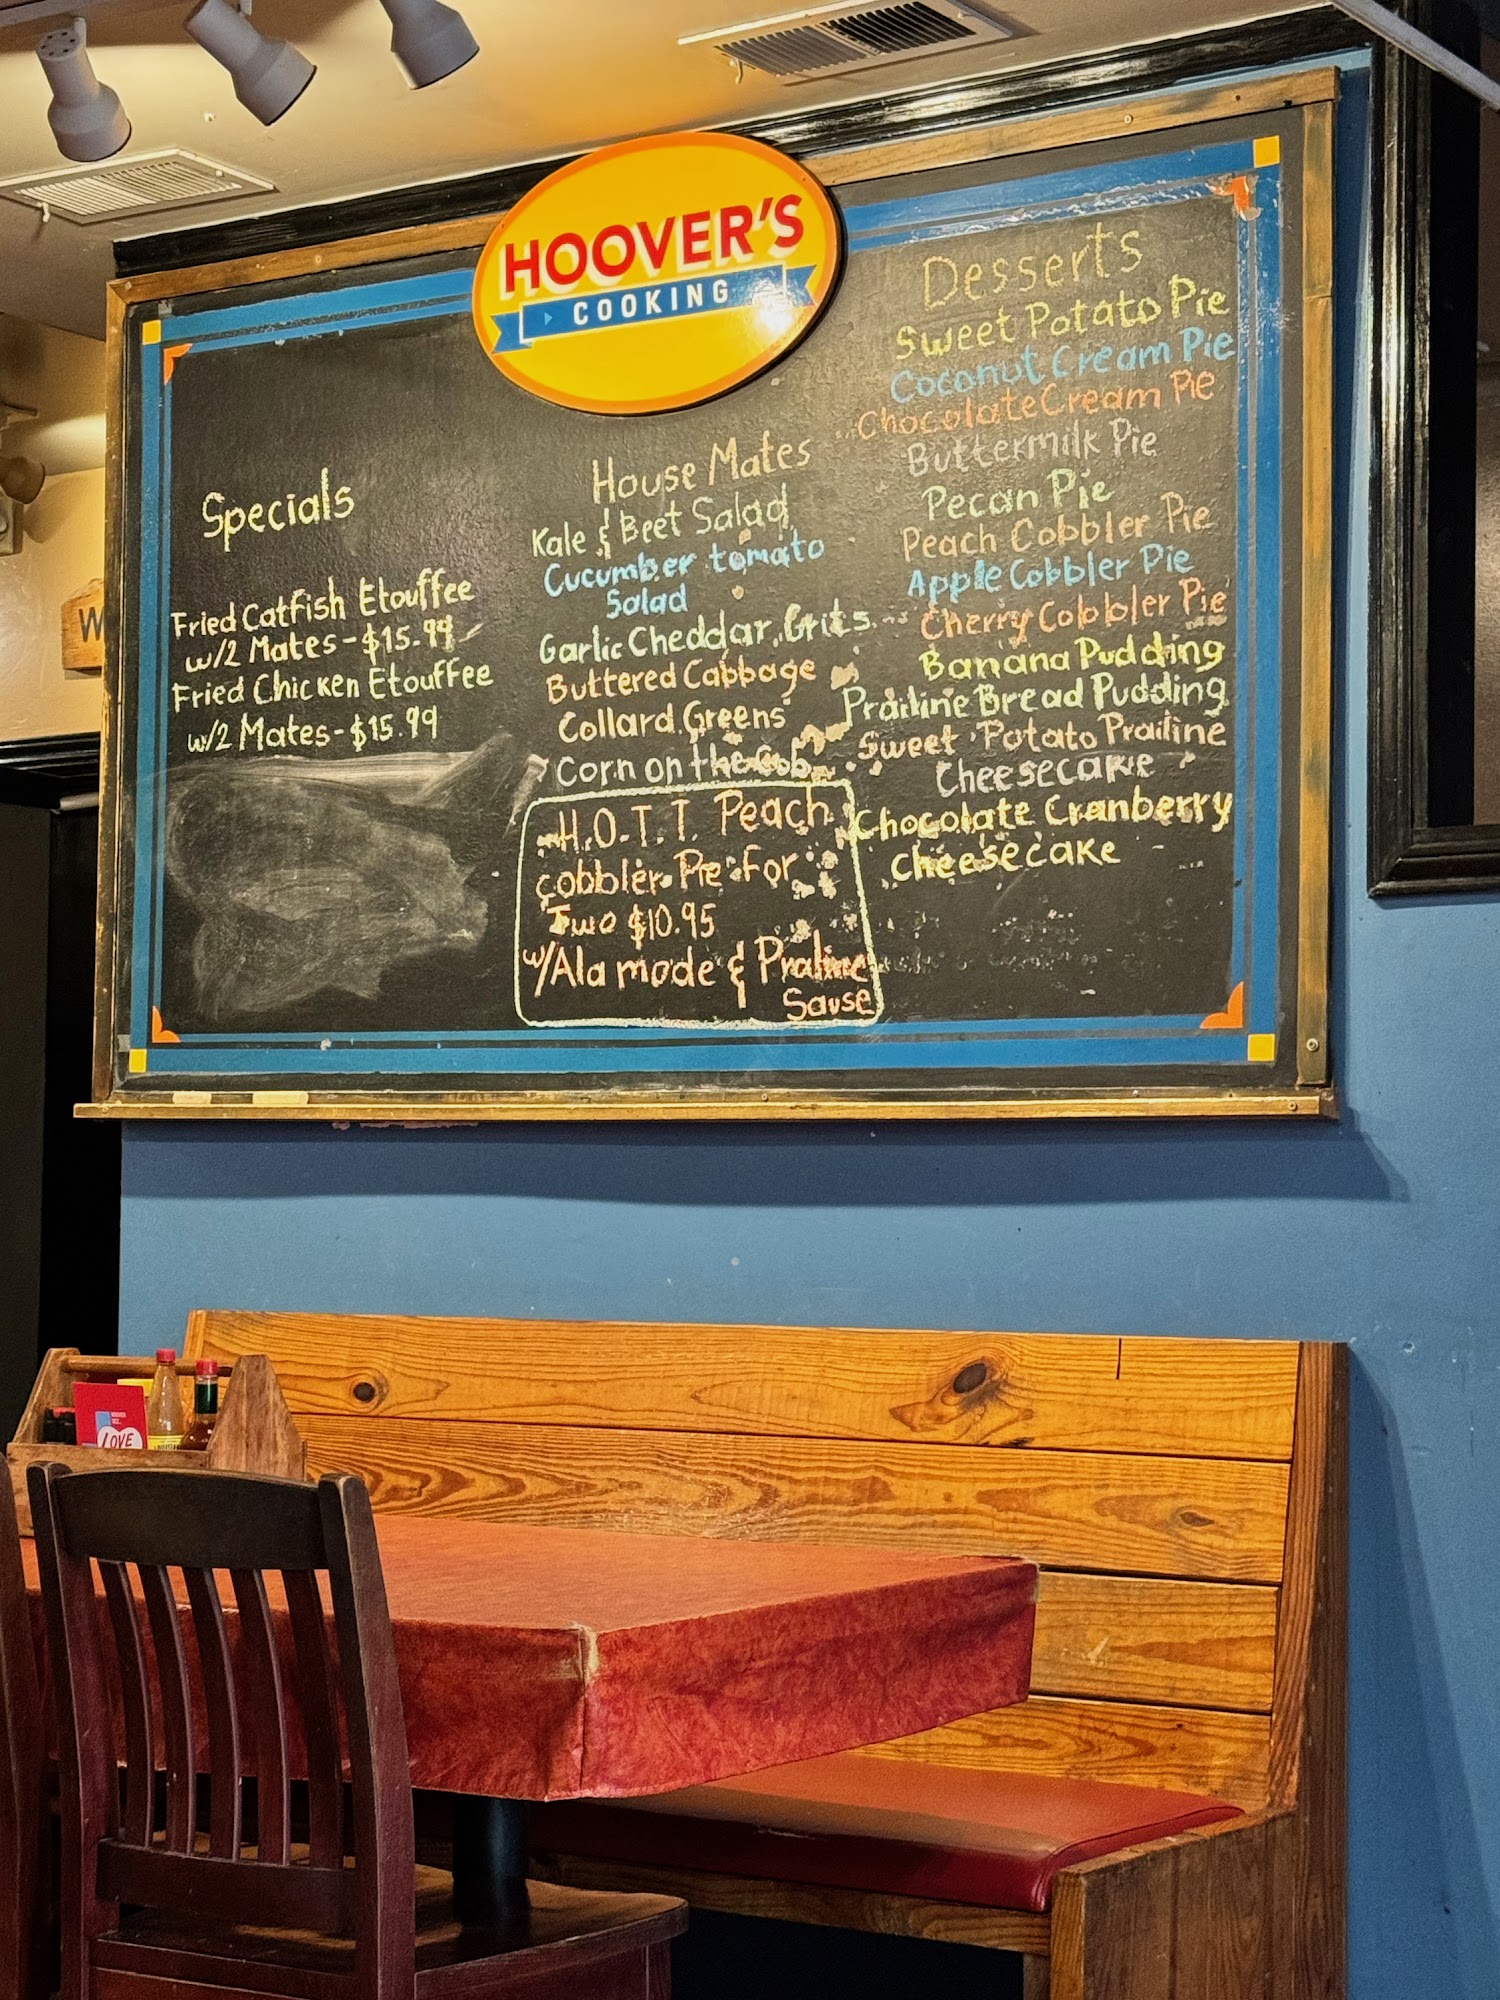 HOOVER'S
COOKING
Specials
Fried Catfish Etouffee
w/2 Mates-$15.99
Fried Chicken Etouffee
w/2 Mates-$15.99
House Mates
Kale & Beet Salad
Cucumber tomato
Salad
Garlic Cheddar Grits
Buttered Cabbage
Collard Greens
Corn on the Cob
H.O.T.T. Peach
Cobbler Pie For
Two $10.95
w/Ala mode & Praline
Sause
Desserts
Sweet Potato Pie
Coconut Cream Pie
Chocolate Cream Pie
Buttermilk Pie
Pecan Pie
Peach Cobbler Pie
Apple Cobbler Pie
Cherry Cobbler Pie
Banana Pudding
Prailine Bread Pudding
Sweet Potato Prailine
Cheesecake
Chocolate Cranberry
Cheesecake
W
LOVE